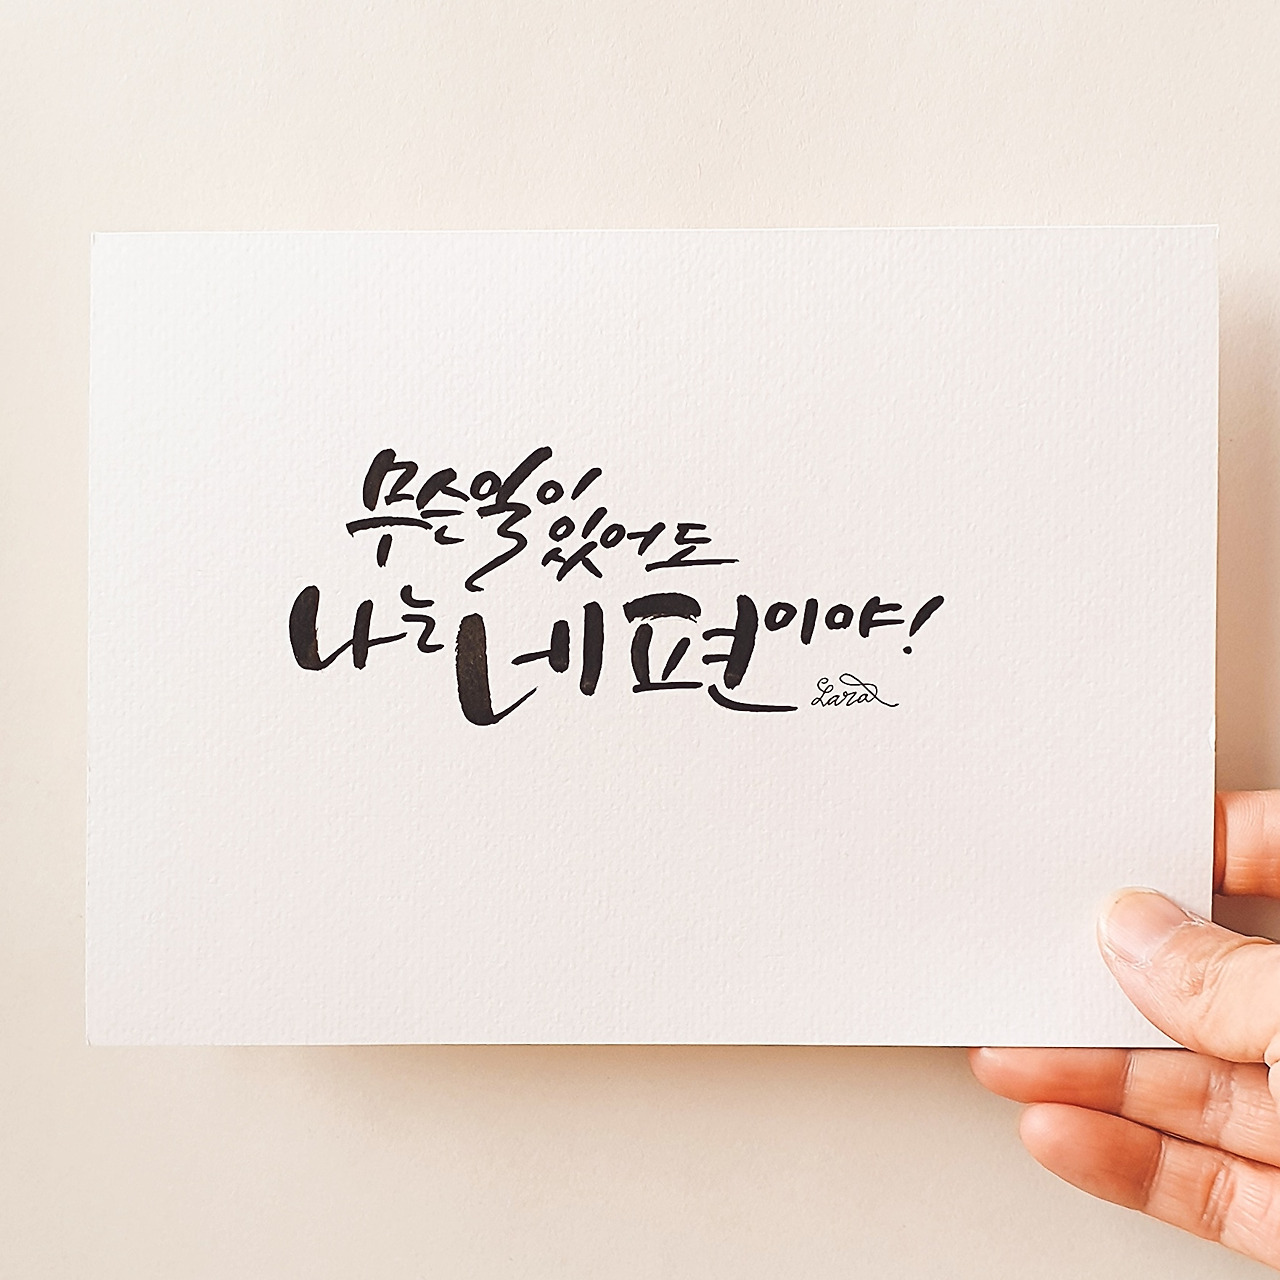 무슨일이
있어도
나는 네 편이야!
Lara